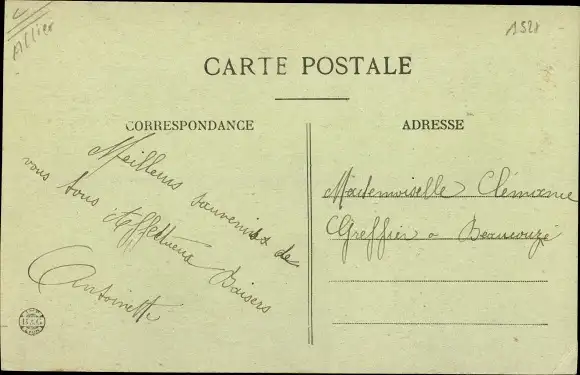 Allier
1528
CARTE POSTALE
CORRESPONDANCE
ADRESSE
Meilleurs souvenirs de
vous tous Affectueux Baisers
Antoinette
Mademoiselle Clémence
Greffier a Beaucouzé
B&G